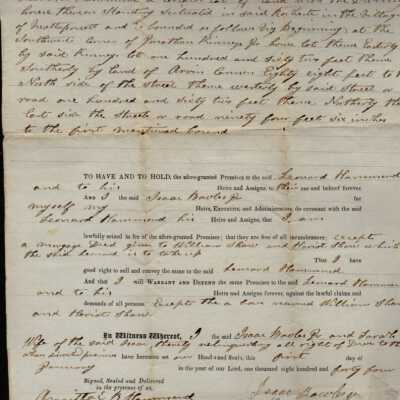 house thereon Standing Situated in said Rochester in the Village
of Mattapoisett & bounded as follows Viz Beginning at the
Southwest Corner of Jonathan Kinneys Jr home lot thence Easterly
by said Kinneys lot one hundred and Sixty two feet thence
Southerly by land of Arvin Cannon Eighty eight feet to the
North side of the Street thence westerly by said Street or
road one hundred and Sixty two feet thence Northerly the
East side the Street or road ninety four feet six inches
to the first mentioned bound
TO HAVE AND TO HOLD, the afore-granted Premises to the said Leonard Hammond
and to his Heirs and Assigns, to their use and behoof forever.
And I the said Isaac Bowles Jr for
myself my Heirs, Executors, and Administrators, do covenant with the said
Leonard Hammond his Heirs and Assigns, that I am
lawfully seized in fee of the afore-granted Premises; that they are free of all incumbrances; except
a mortgage Deed given to William Shaw and Hariot Shaw which
the said Leonard is to take up
That I have
good right to sell and convey the same to the said Leonard Hammond
And that I will WARRANT AND DEFEND the same Premises to the said Leonard Hammond
and to his Heirs and Assigns forever, against the lawful claims and
demands of all persons. Except the a bove named William Shaw
and Hariot Shaw.
In Witness Whereof, I the said Isaac Bowles Jr and Sarah
Wife of the said Isaac hereby relinquishing all right of Dower to the
have hereunto set our Hands and Seals, this first day of
January in the year of our Lord, one thousand eight hundred and forty four
Signed, Sealed and Delivered
in the presence of us.
B Hammond
Isaac Bowles Jr